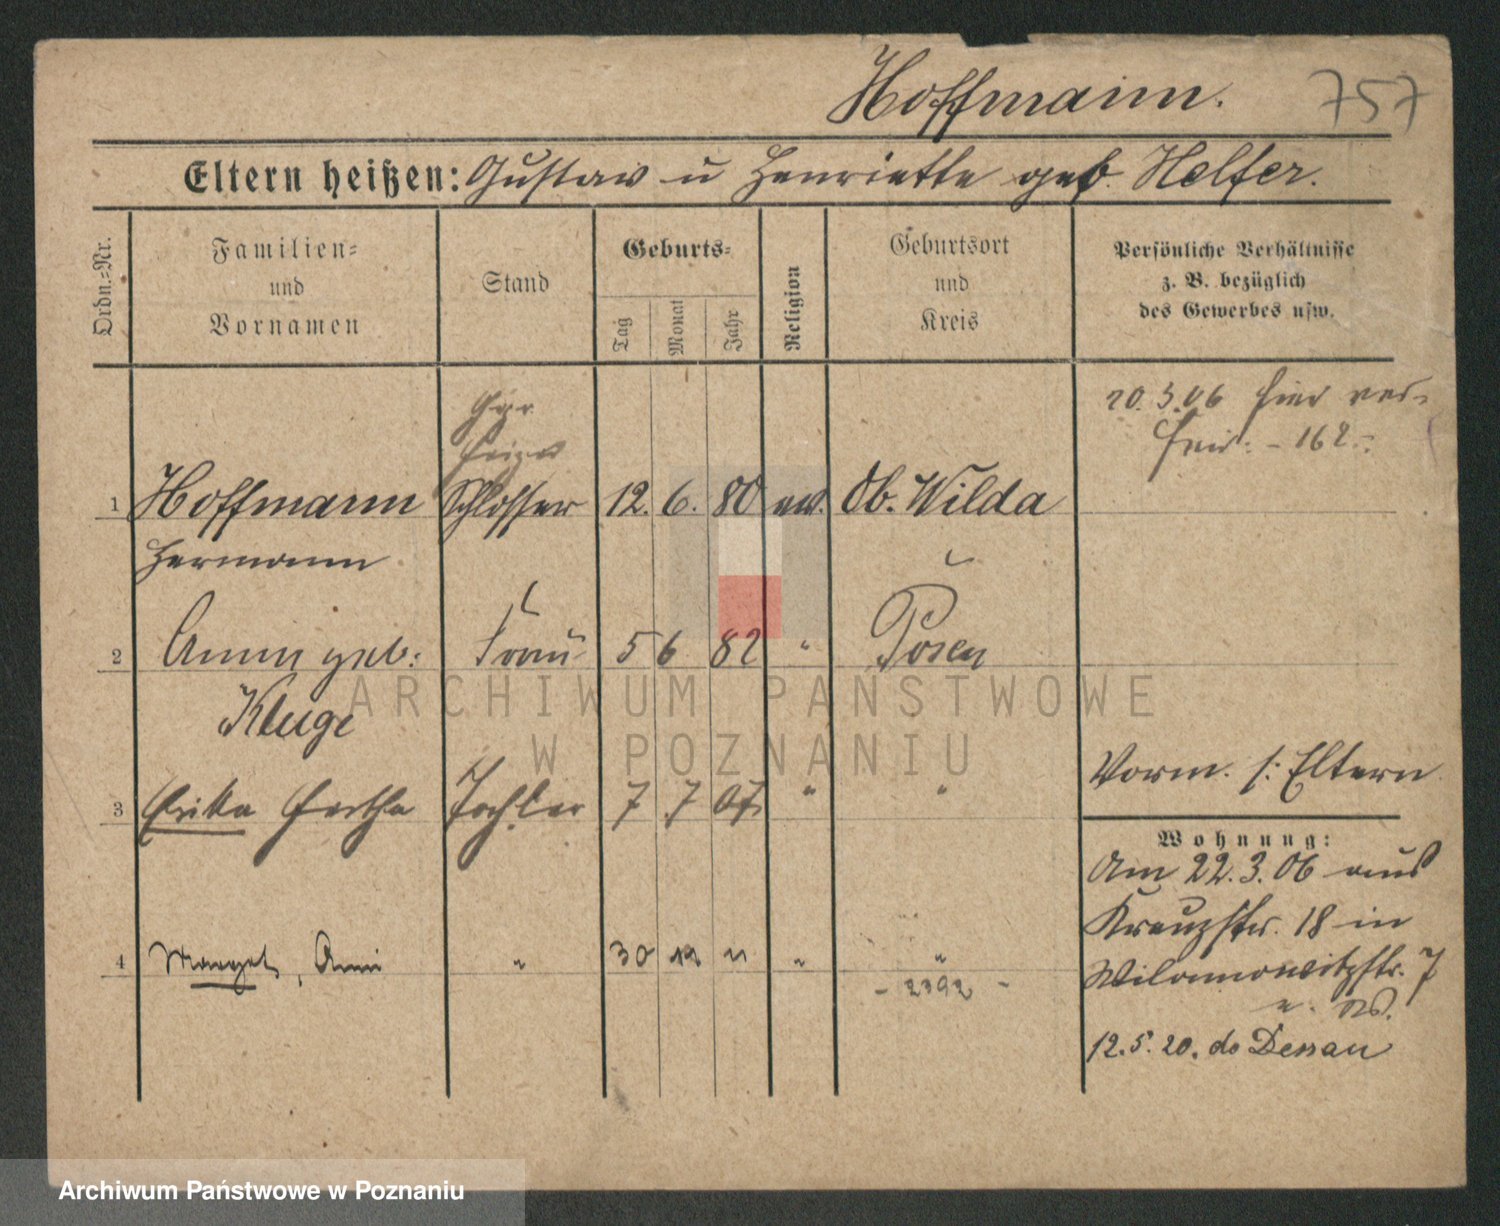 Hoffmann.
757
Eltern heißen: Gustav u Henriette geb. Helfer.
Ordn.-Nr.
Familien-
und
Vornamen
Stand
Geburts-
Tag
Monat
Jahr
Religion
Geburtsort
und
Kreis
Persönliche Verhältnisse
z. B. bezüglich
des Gewerbes usw.
20.3.06 hier ver-
heir: - 162 -
1 Hoffmann Schlosser 12. 6. 80 ev. Ob. Wilda
Hermann
2 geb: Frau 5 6 82 " Posen
Kluge
Vorm. s: Eltern
3 Erika Hertha Tochter 7 7 07 " "
Wohnung:
Am 22.3.06 aus
Kreuzstr. 18 in
Wilamowitzstr. 7
4 Margot, Anni " 30 11 " "
- 2392 -
12.5.20. do Dessau
ARCHIWUM PAŃSTWOWE
W POZNANIU
Archiwum Państwowe w Poznaniu